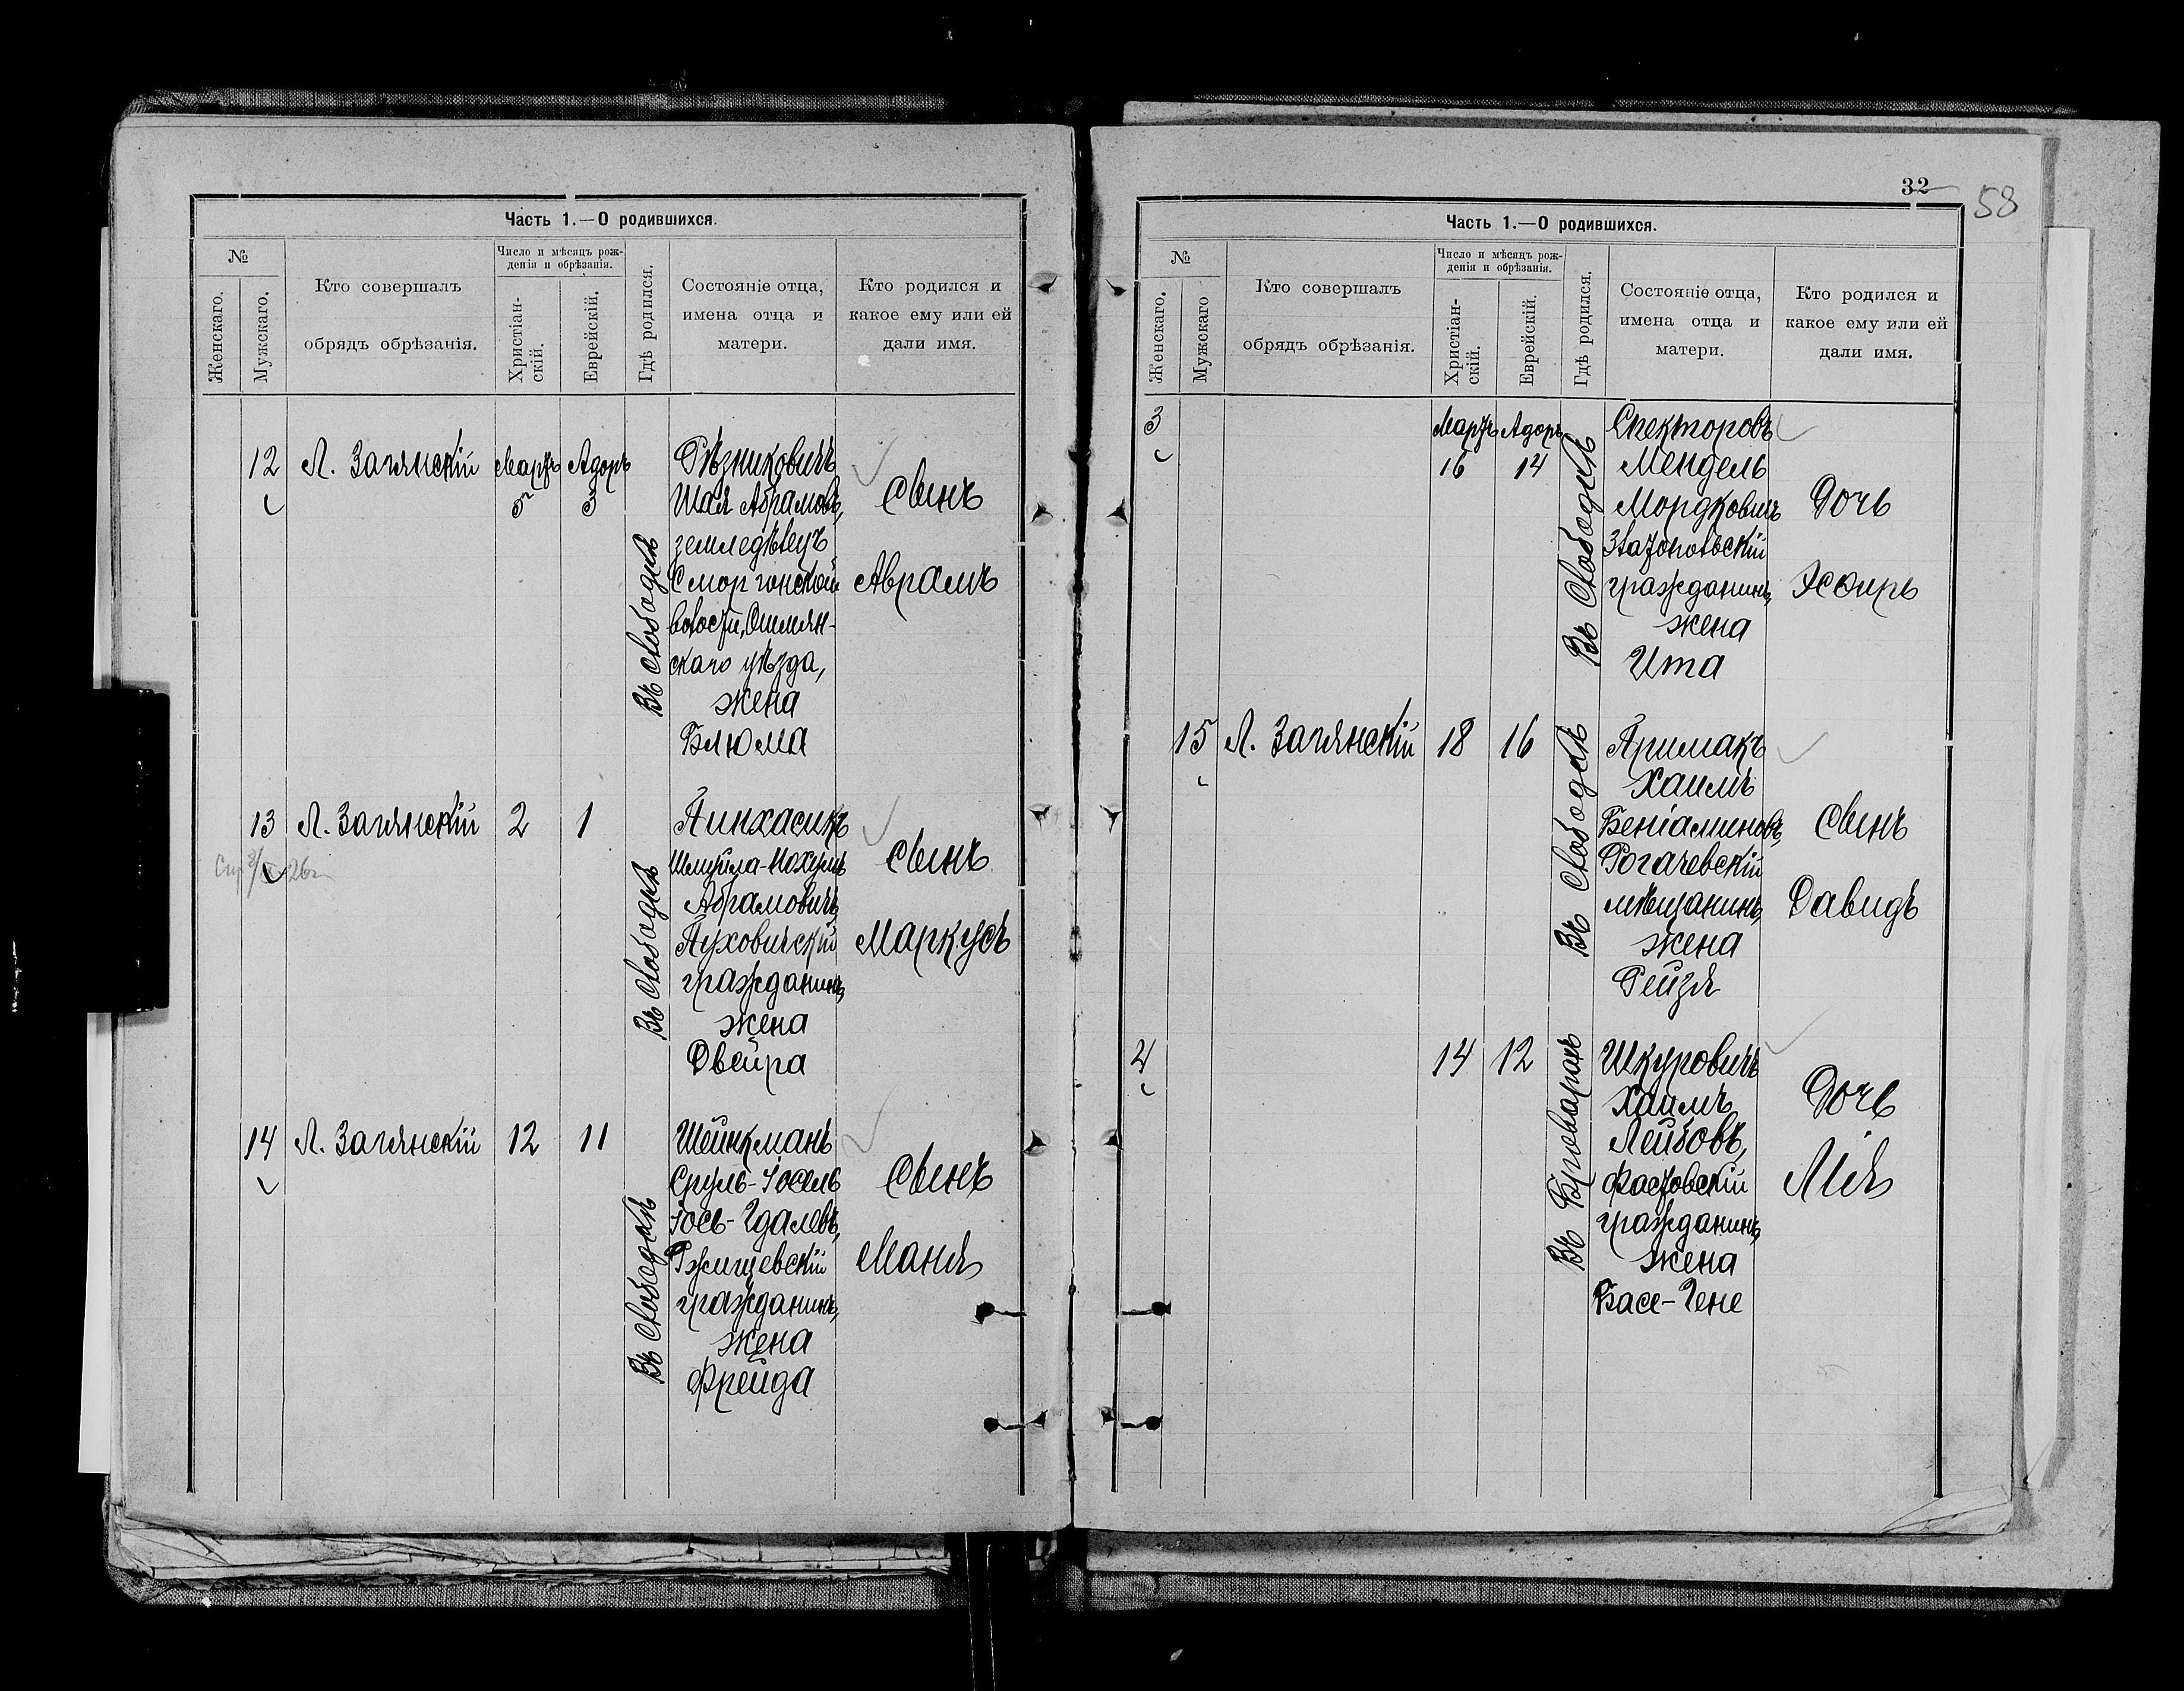 Часть 1.—О родившихся.
№
Женскаго.
Мужскаго.
Кто совершалъ
обрядъ обрѣзанія.
Число и мѣсяцъ рож-
денія и обрѣзанія.
Христіан-
скій.
Еврейскій.
Гдѣ родился.
Состояніе отца,
имена отца и
матери.
Кто родился и
какое ему или ей
дали имя.
12
Л. Загянскій
Мартъ
5
Адоръ
3
Въ Слободкѣ
Рѣзниковичъ
Шая Абрамовъ,
земледѣлецъ
Сморгонской
волости, Ошмян-
скаго уѣзда,
жена
Блюма
Сынъ
Аврамъ
13
Л. Загянскій
2
1
Въ Слободкѣ
Пинхасикъ
Шмуйла-Нохумъ
Абрамовичъ,
Пуховичскій
гражданинъ,
жена
Двейра
Сынъ
Маркусъ
14
Л. Загянскій
12
11
Въ Слободкѣ
Шейнкманъ
Сруль-Іосель
Іось-Гдалевъ,
Ржищевскій
гражданинъ,
жена
Фрейда
Сынъ
Маня
32
58
Часть 1.—О родившихся.
№
Женскаго.
Мужскаго
Кто совершалъ
обрядъ обрѣзанія.
Число и мѣсяцъ рож-
денія и обрѣзанія.
Христіан-
скій.
Еврейскій.
Гдѣ родился.
Состояніе отца,
имена отца и
матери.
Кто родился и
какое ему или ей
дали имя.
3
Мартъ
16
Адоръ
14
Въ Слободкѣ
Спекторовъ
Мендель
Мордковичъ
Златопольскій
гражданинъ,
жена
Ита
Дочь
Эсѳирь
15
Л. Загянскій
18
16
Въ Слободкѣ
Примакъ
Хаимъ
Беніаминовъ,
Рогачевскій
мѣщанинъ,
жена
Рейзя
Сынъ
Давидъ
4
14
12
Въ
Шкуровичъ
Хаимъ
Лейбовъ,
Фастовскій
гражданинъ,
жена
Басе-Гене
Дочь
Лія